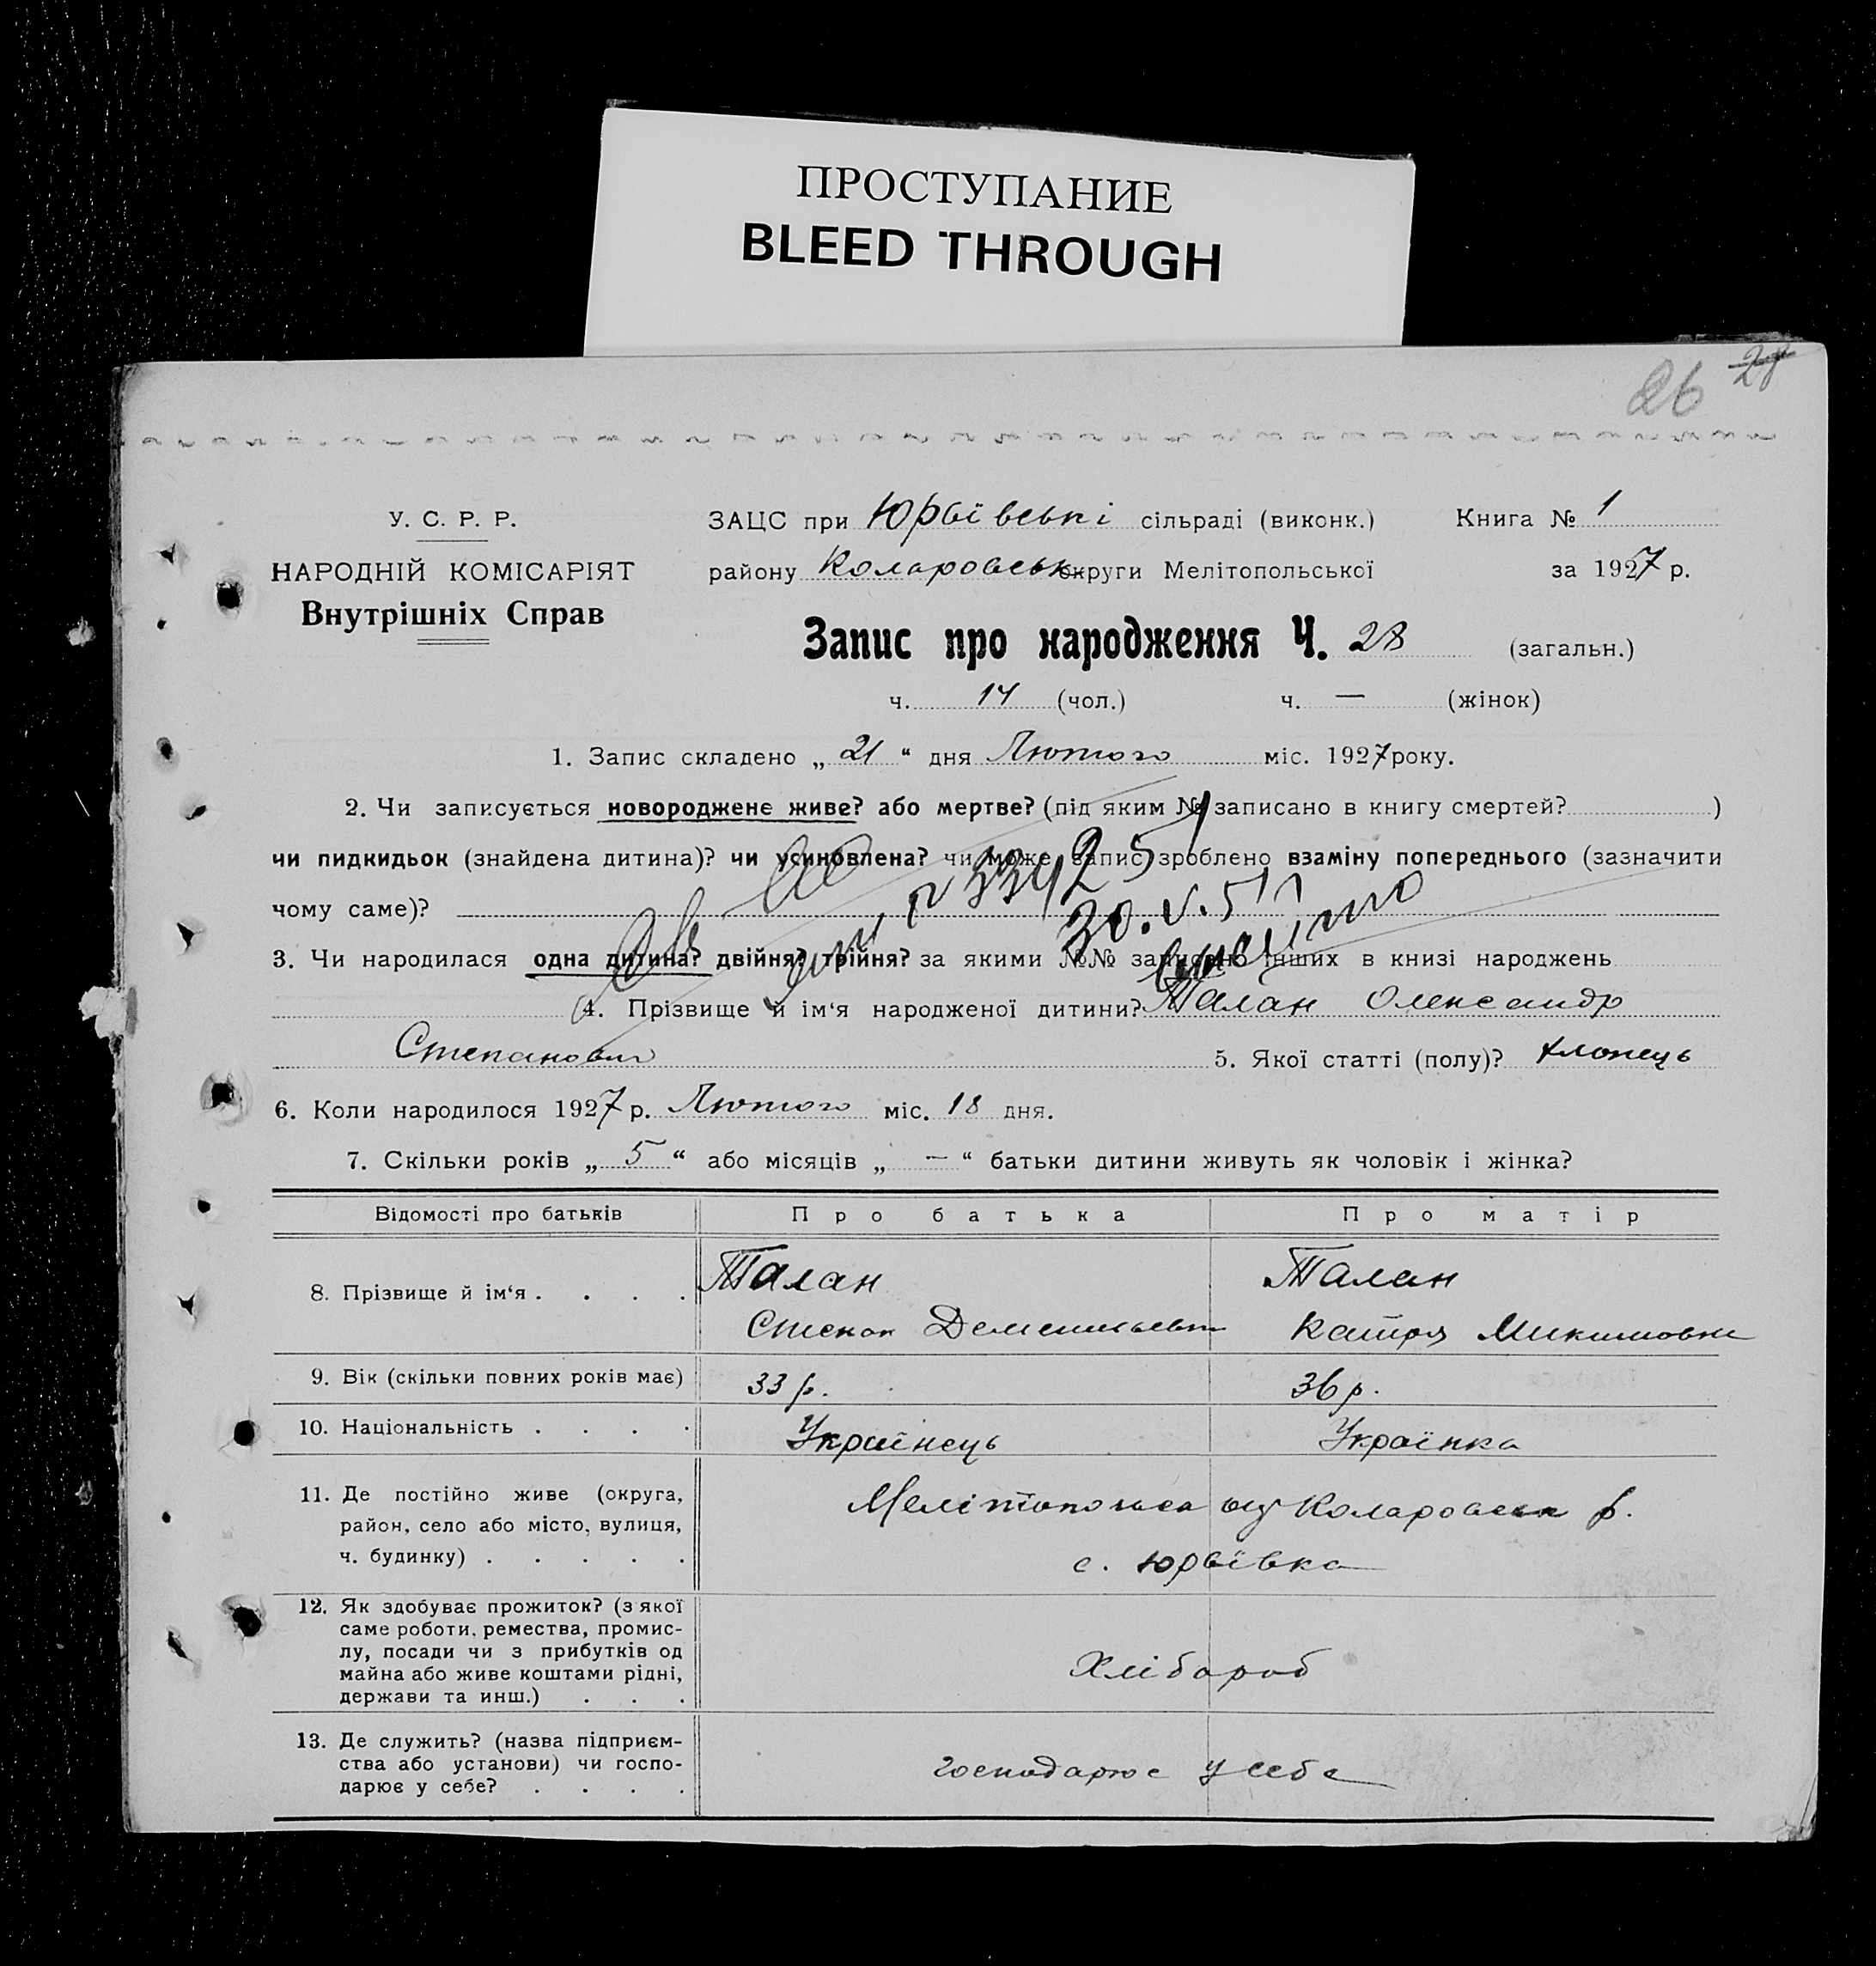 ПРОСТУПАНИЕ
BLEED THROUGH
26 28
У. С. Р. Р.
НАРОДНІЙ КОМІСАРІЯТ
Внутрішніх Справ
ЗАЦС при Юрʼївські сільраді (виконк.) Книга № 1
району Коларовськ округи Мелітопольської за 1927 р.
Запис про народження Ч. 28 (загальн.)
ч. 14 (чол.) ч. — (жінок)
1. Запис складено „ 21 “ дня Лютого міс. 1927 року.
2. Чи записується новороджене живе? або мертве? (під яким № записано в книгу смертей? )
чи пидкидьок (знайдена дитина)? чи усиновлена? чи може запис зроблено взаміну попереднього (зазначити
чому саме)?
30.V.51
3. Чи народилася одна дитина? двійня? трійня? за якими №№ записано інших в книзі народжень
4. Прізвище й ім‘я народженої дитини? Талан Олександр
Степанович 5. Якої статті (полу)? хлопець
6. Коли народилося 1927 р. Лютого міс. 18 дня.
7. Скільки років „ 5 “ або місяців „ — “ батьки дитини живуть як чоловік і жінка?
Відомості про батьків Про батька Про матір
8. Прізвище й ім‘я . . . . Талан Талан
Степан Катря
9. Вік (скільки повних років має) 33 р. 36 р.
10. Національність . . . . Українець Українка
11. Де постійно живе (округа,
район, село або місто, вулиця,
ч. будинку) . . . . .
Коларовськ р.
с. Юрʼївка
12. Як здобуває прожиток? (з якої
саме роботи, ремества, промис-
лу, посади чи з прибутків од
майна або живе коштами рідні,
держави та инш.) . . .
Хлібороб
13. Де служить? (назва підприєм-
ства або установи) чи госпо-
дарює у себе? . . . .
господарює у себе